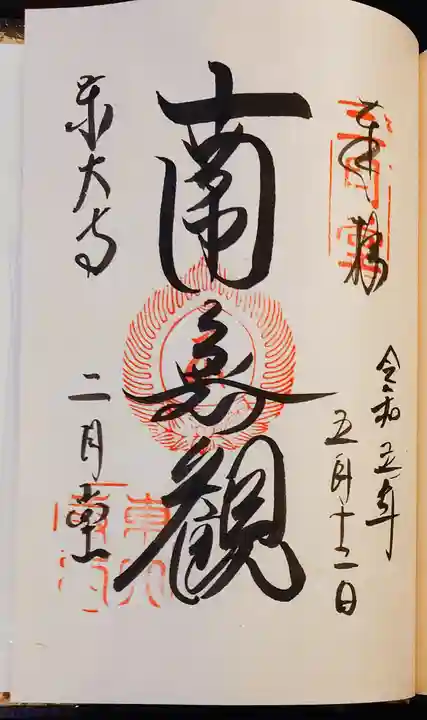 奉拝
令和五年
五月十二日
南無観
東大寺
二月堂